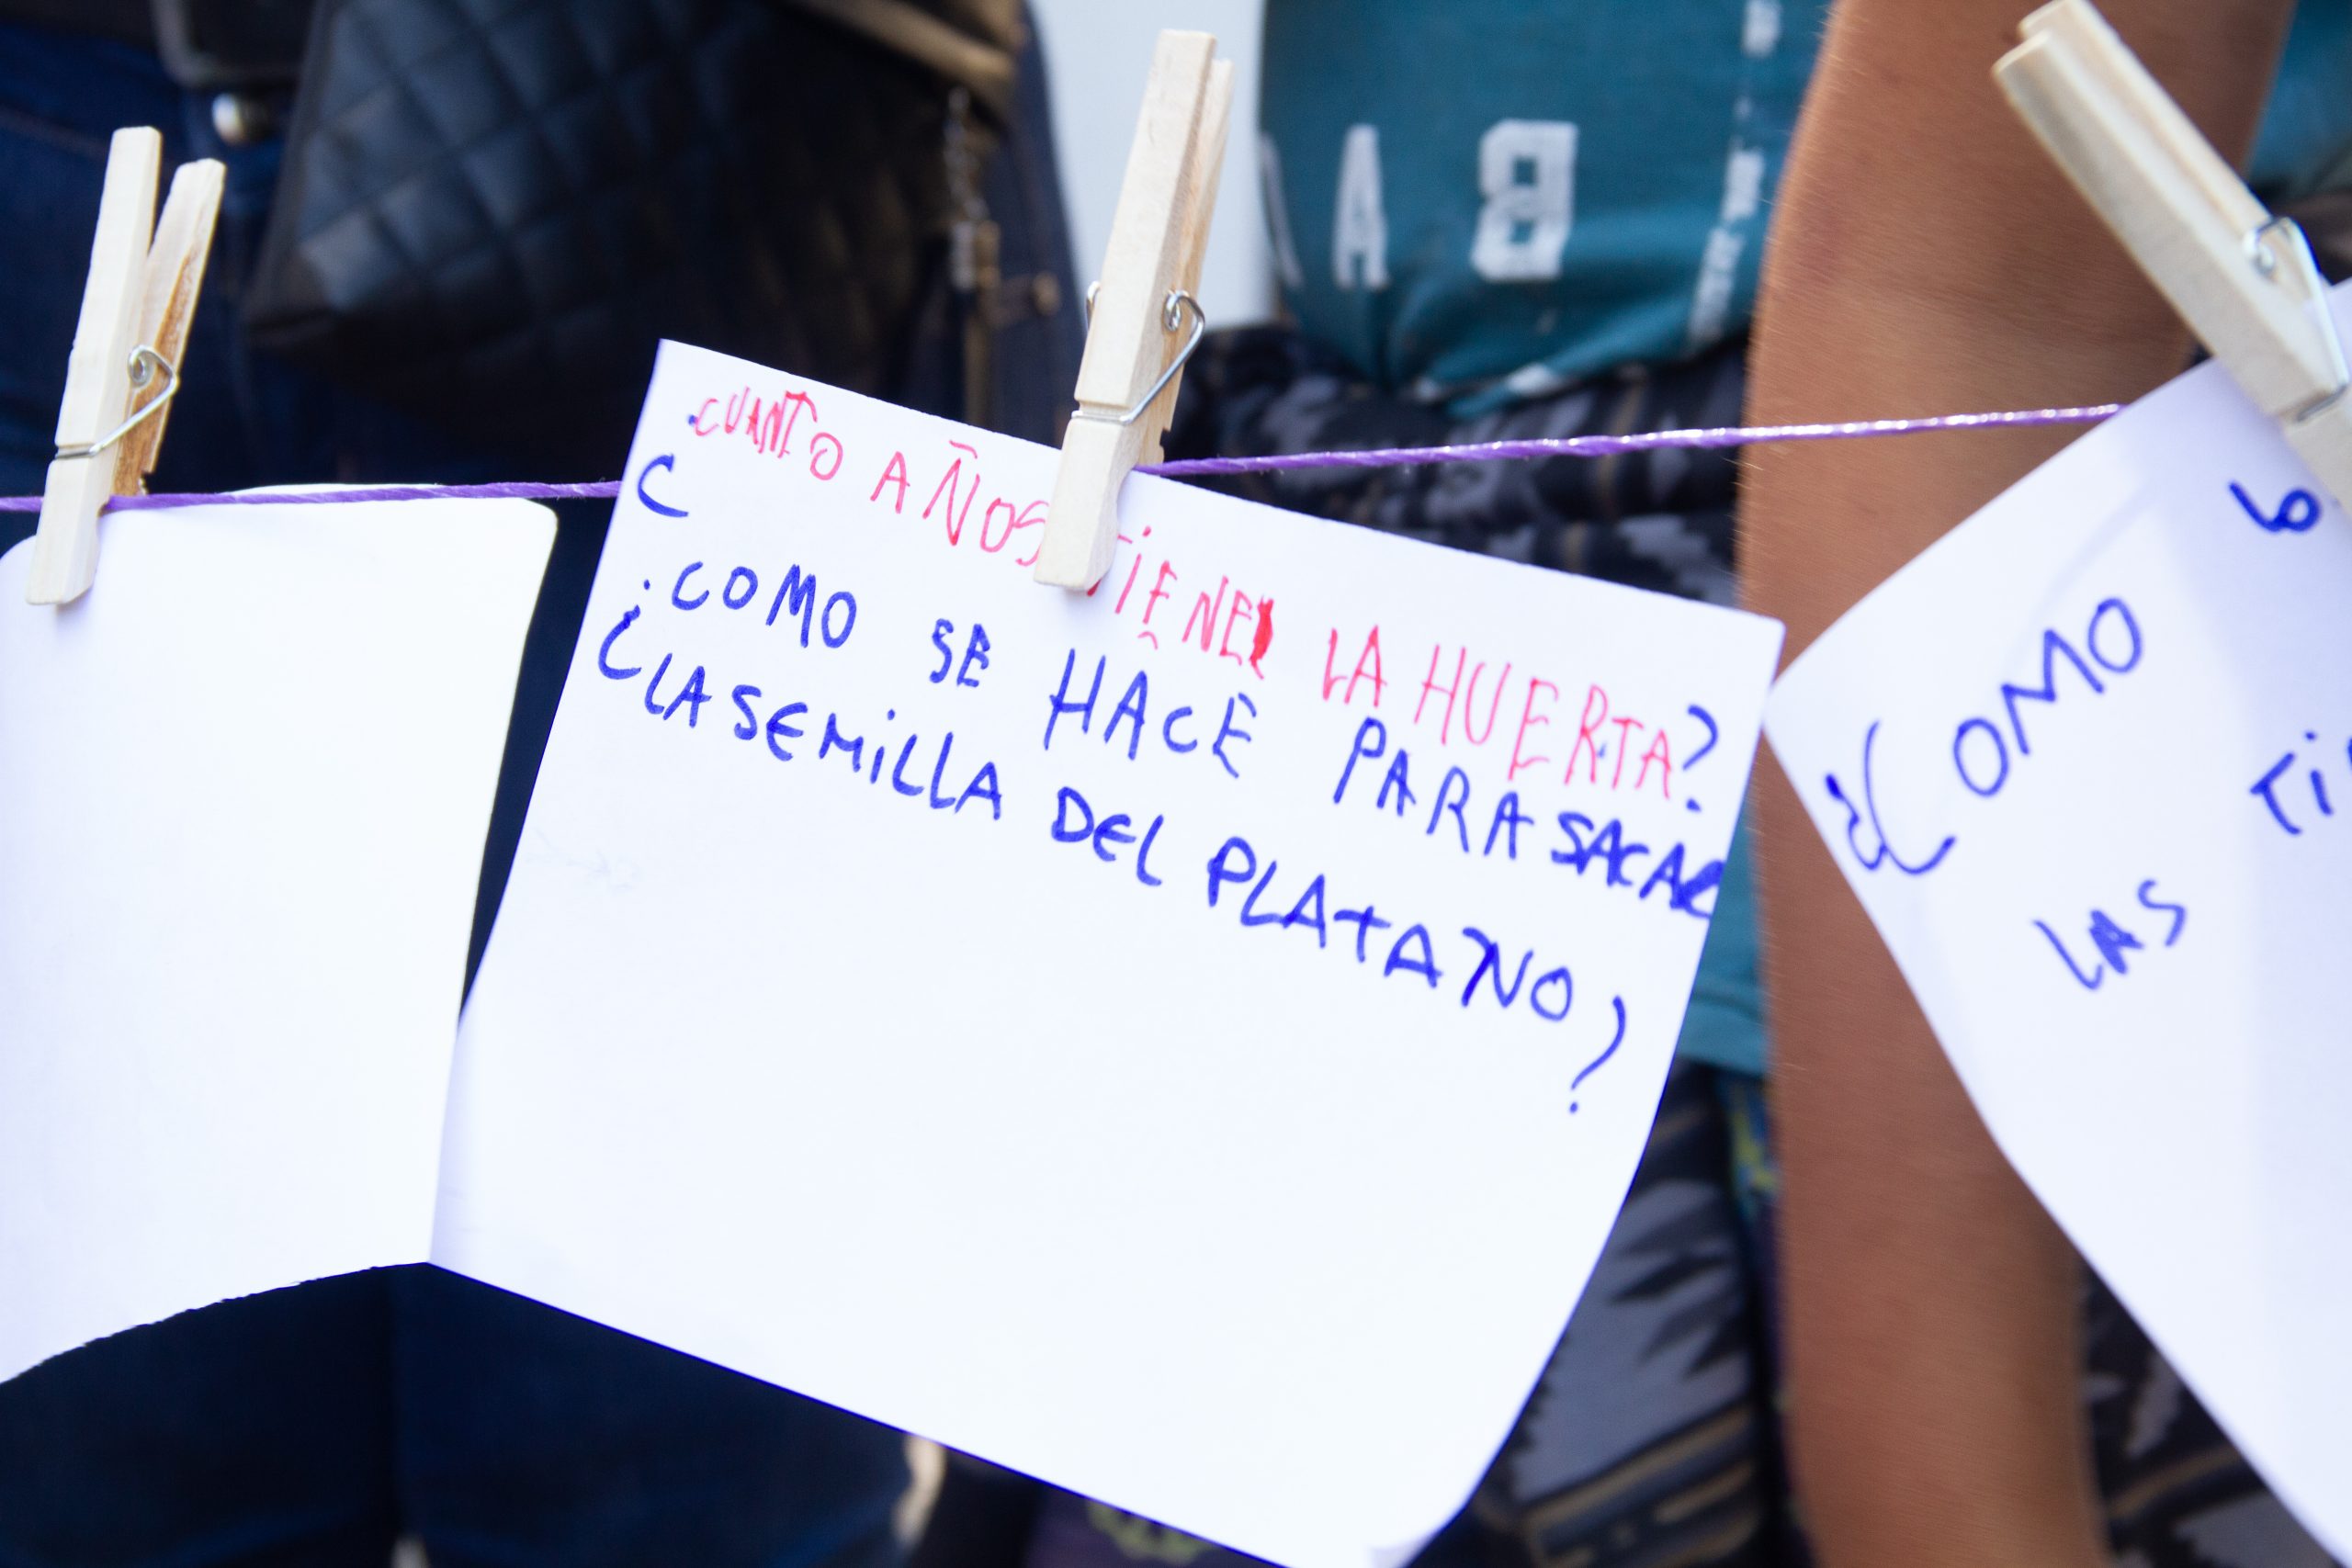 ¿CUANTO AÑOS TIENE LA HUERTA?
¿COMO SE HACE PARA SACAR
LA SEMILLA DEL PLATANO?
¿COMO
LAS
AB